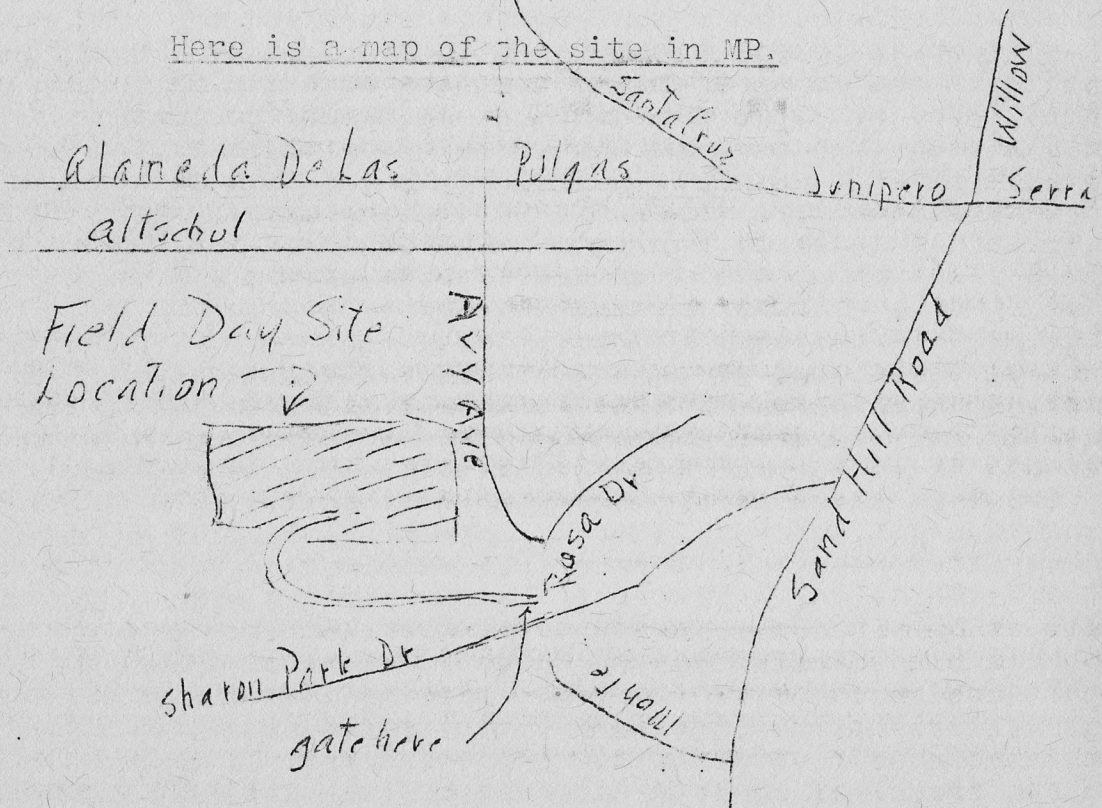 Here is a map of the site in MP.
Santa Cruz
Willow
Alameda De Las Pulgas
Junipero Serra
Altschul
Field Day Site
Location
Avy Ave
Sand Hill Road
Rosa Dr
Sharon Park Dr
gate here